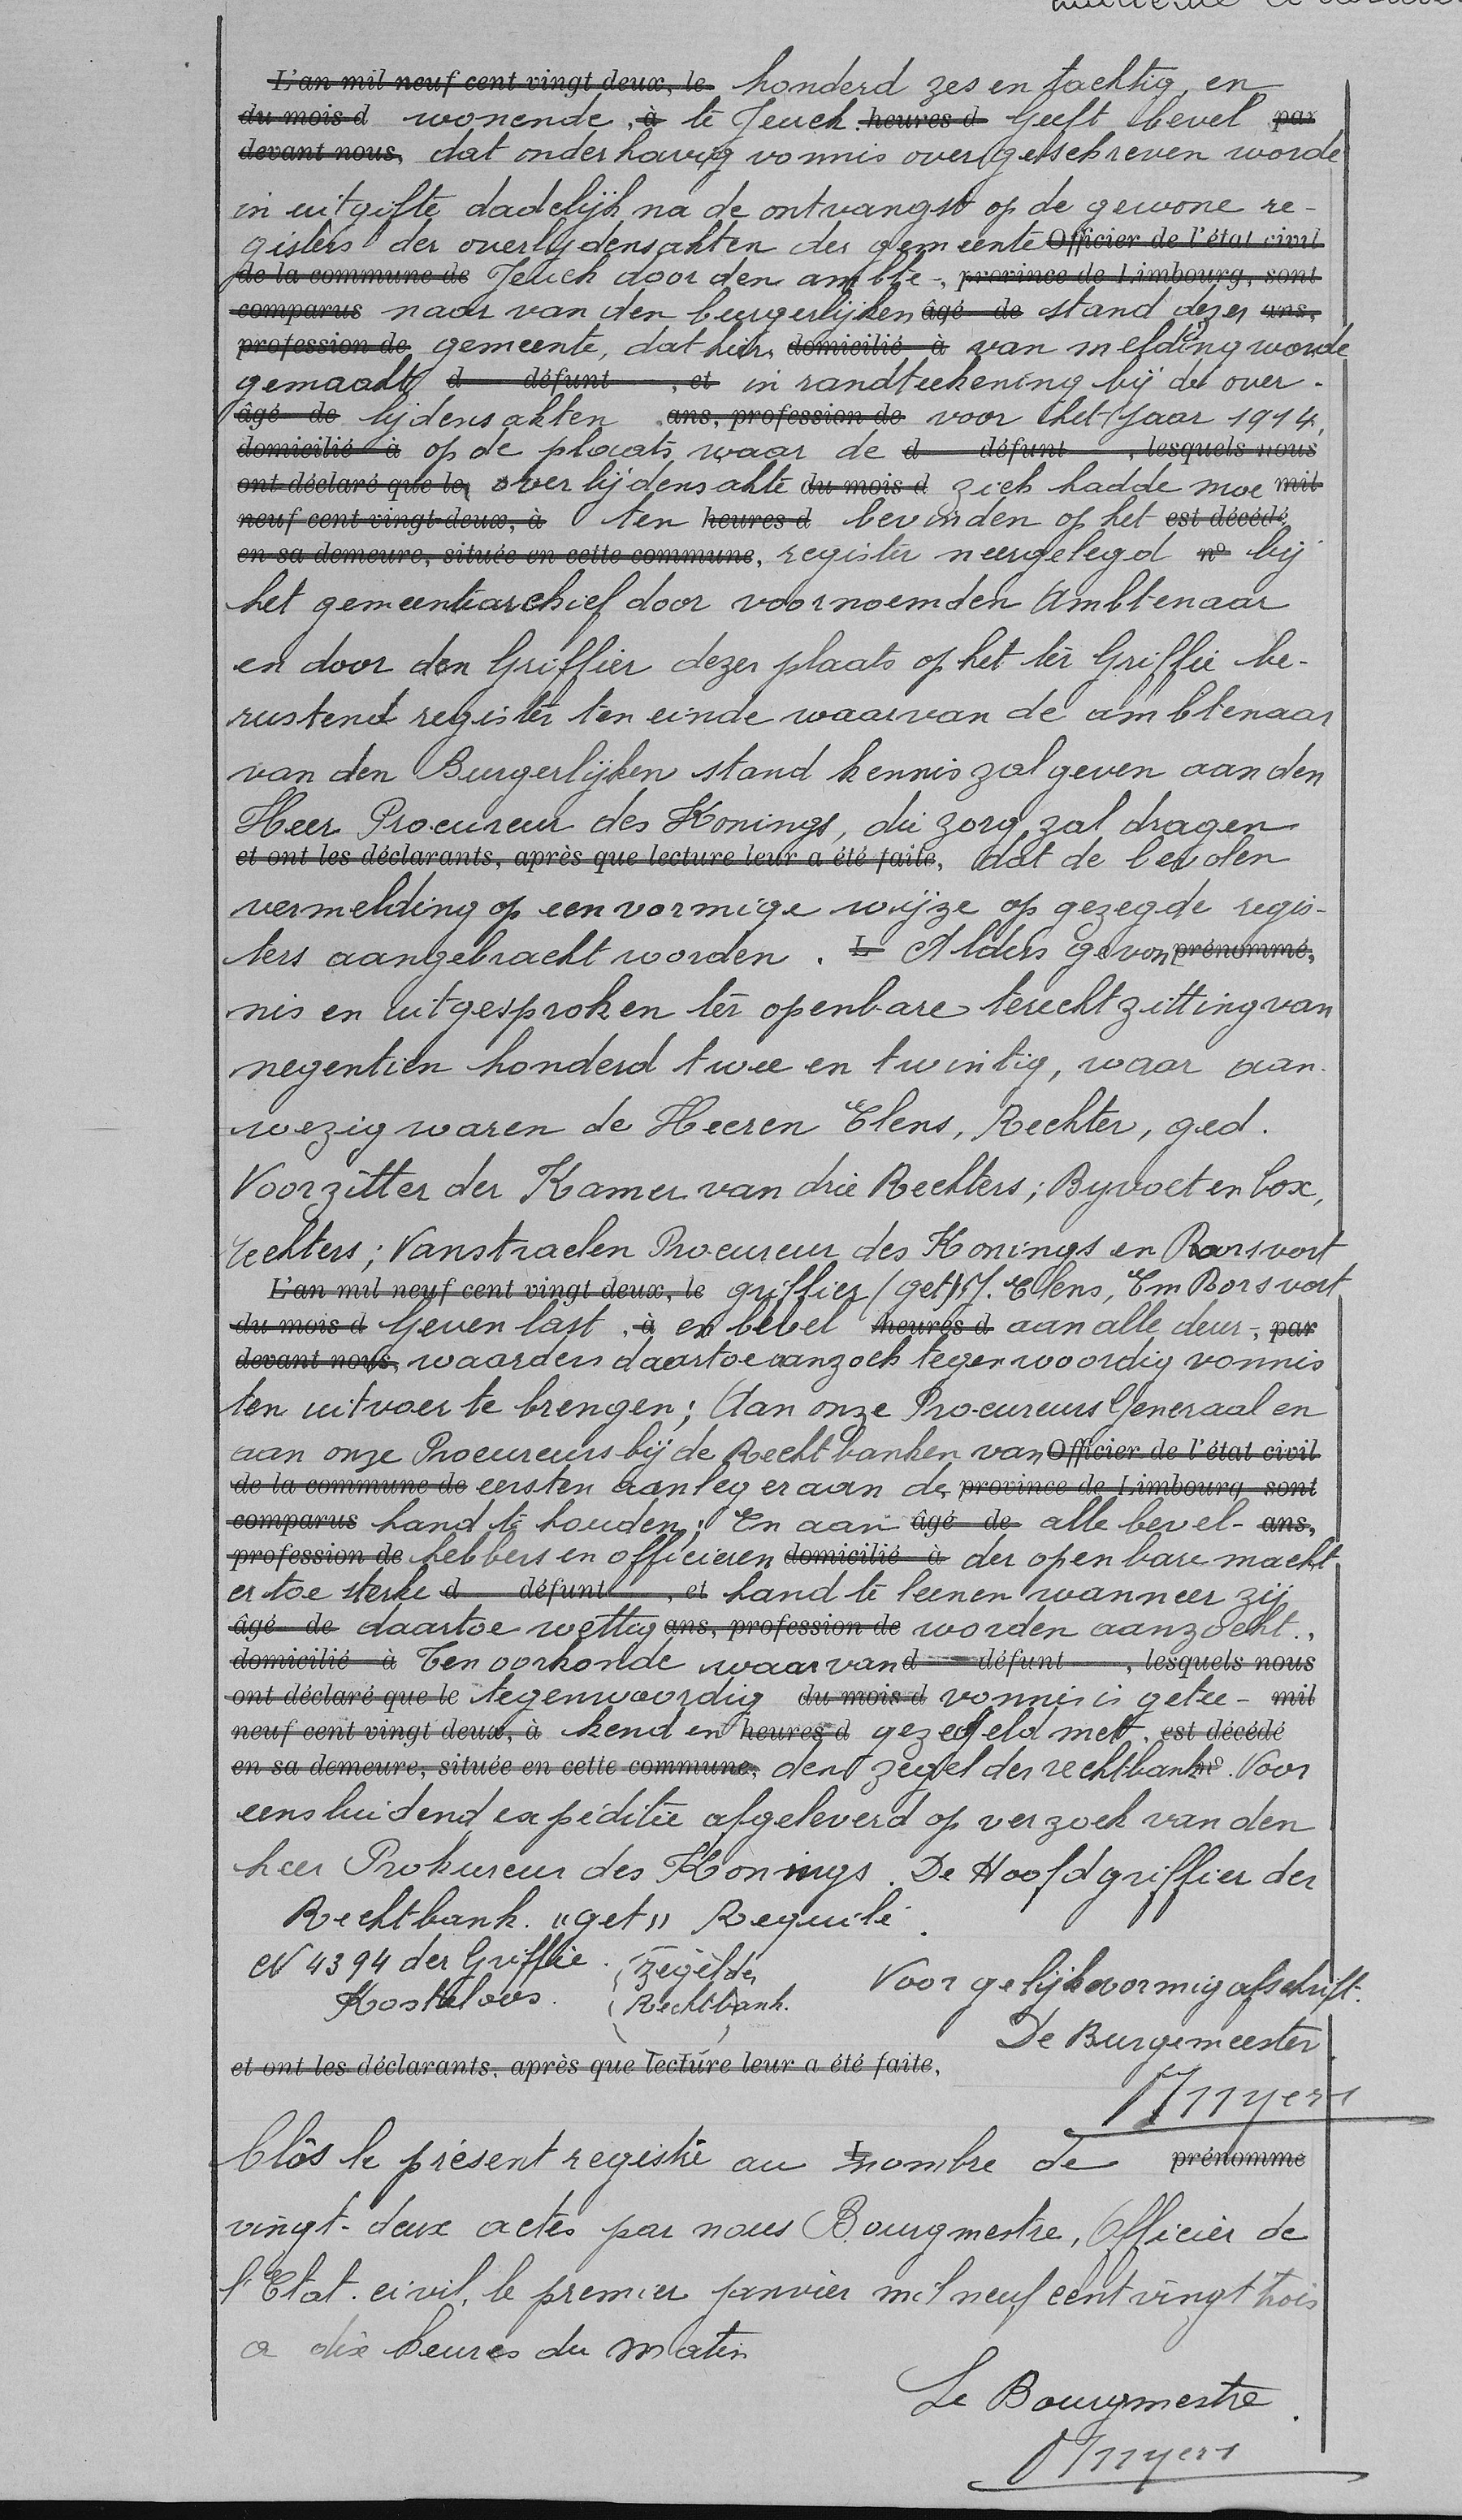 L'an mil neuf cent vingt deux, le honderd zes en tachtig, en
du mois d wonende, à te Jeuck. heures d Geeft bevel par
devant nous, dat onderhavig vonnis overgeschreven worde
in uitgifte dadelijk na de ontvangst op de gewone re-
gisters der overlijdensakten der gemeente Officier de l'état civil
de la commune de Jeuck door den ambte-, province de Limbourg, sont
comparus naar van den burgerlijken âgé de stand dezer ans,
profession de gemeente, dat hier, domicilié à van melding worde
gemaakt d défunt , et in randteekening bij de over-
âgé de lijdensakten ans, profession de voor het Jaar 1914,
domicilié à op de plaats waar de d défunt , lesquels nous
ont déclaré que le, overlijdensakte du mois d zich hadde moe mil
neuf cent vingt deux, à ten heures d bevinden op het est décédé
en sa demeure, située en cette commune, register neergelegd nº bij
het gemeentearchief door voornoemden Ambtenaar
en door den Griffier dezer plaats op het ter Griffie be-
rustend register ten einde waarvan de ambtenaar
van den Burgerlijken stand kennis zal geven aan den
Heer Procureur des Konings, die zorg zal dragen
et ont les déclarants, après que lecture leur a été faite, dat de bevolen
vermelding op eenvormige wijze op gezegde regis-
ters aangebracht worden. L Aldus gevon prénommé,
nis en uitgesproken ter openbare terechtzitting van
negentien honderd twee en twintig, waar aan-
wezig waren de Heeren Elens, Rechter, ged.
Voorzitter der Kamer van drie Rechters; Byvoet en Cox,
rechters; Vanstraelen Procureur des Konings en Roosvort
L'an mil neuf cent vingt deux, le griffier (get) J. Elens, Em Borsvort
du mois d Geven last, à en bevel heures d aan alle deur-, par
devant nous, waarders daartoe aanzoch tegenwoordig vonnis
ten uitvoer te brengen; Aan onze Procureurs Generaal en
aan onze Procureurs bij de Rechtbanken van Officier de l'état civil
de la commune de eersten aanleg eraan de province de Limbourg sont
comparus hand te houden; En aan âgé de alle bevel- ans,
profession de hebbers en officieren domicilié à der openbare macht
ertoe sterke d défunt , et hand te leenen wanneer zij
âgé de daartoe wettig ans, profession de worden aanzocht.,
domicilié à Ten oorkonde waarvan d défunt , lesquels nous
ont déclaré que le tegenwoordig du mois d vonnis is getee- mil
neuf cent vingt deux, à kend en heures d gezegeld met. est décédé
en sa demeure, située en cette commune, den zegel der rechtbank nº. Voor
eensluidend expeditie afgeleverd op verzoek van den
heer Prokureur des Konings. De Hoofdgriffier der
Rechtbank. "get" Requilé.
N 4394 der Griffie. Zegel der Voor gelijkvormig afschrift.
Kosteloos. Rechtbank.
De Burgemeester
et ont les déclarants, après que lecture leur a été faite,
Clôs le présent registre au L nombre de prénommé
vingt-deux actes par nous Bourgmestre, Officier de
l'Etat. civil, le premier janvier mil neuf cent vingt trois
a dix heures du matin
Le Bourgmestre.